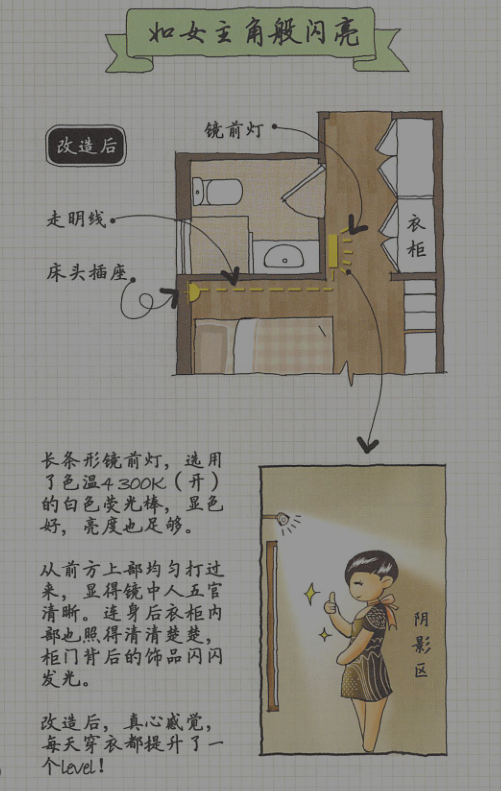 如女主角般闪亮
改造后
镜前灯
走明线
床头插座
衣
柜
长条形镜前灯，选用
了色温4300K（开）
的白色荧光棒，显色
好，亮度也足够。
从前方上部均匀打过
来，显得镜中人五官
清晰。连身后衣柜内
部也照得清清楚楚，
柜门背后的饰品闪闪
发光。
改造后，真心感觉，
每天穿衣都提升了一
个level！
阴
影
区